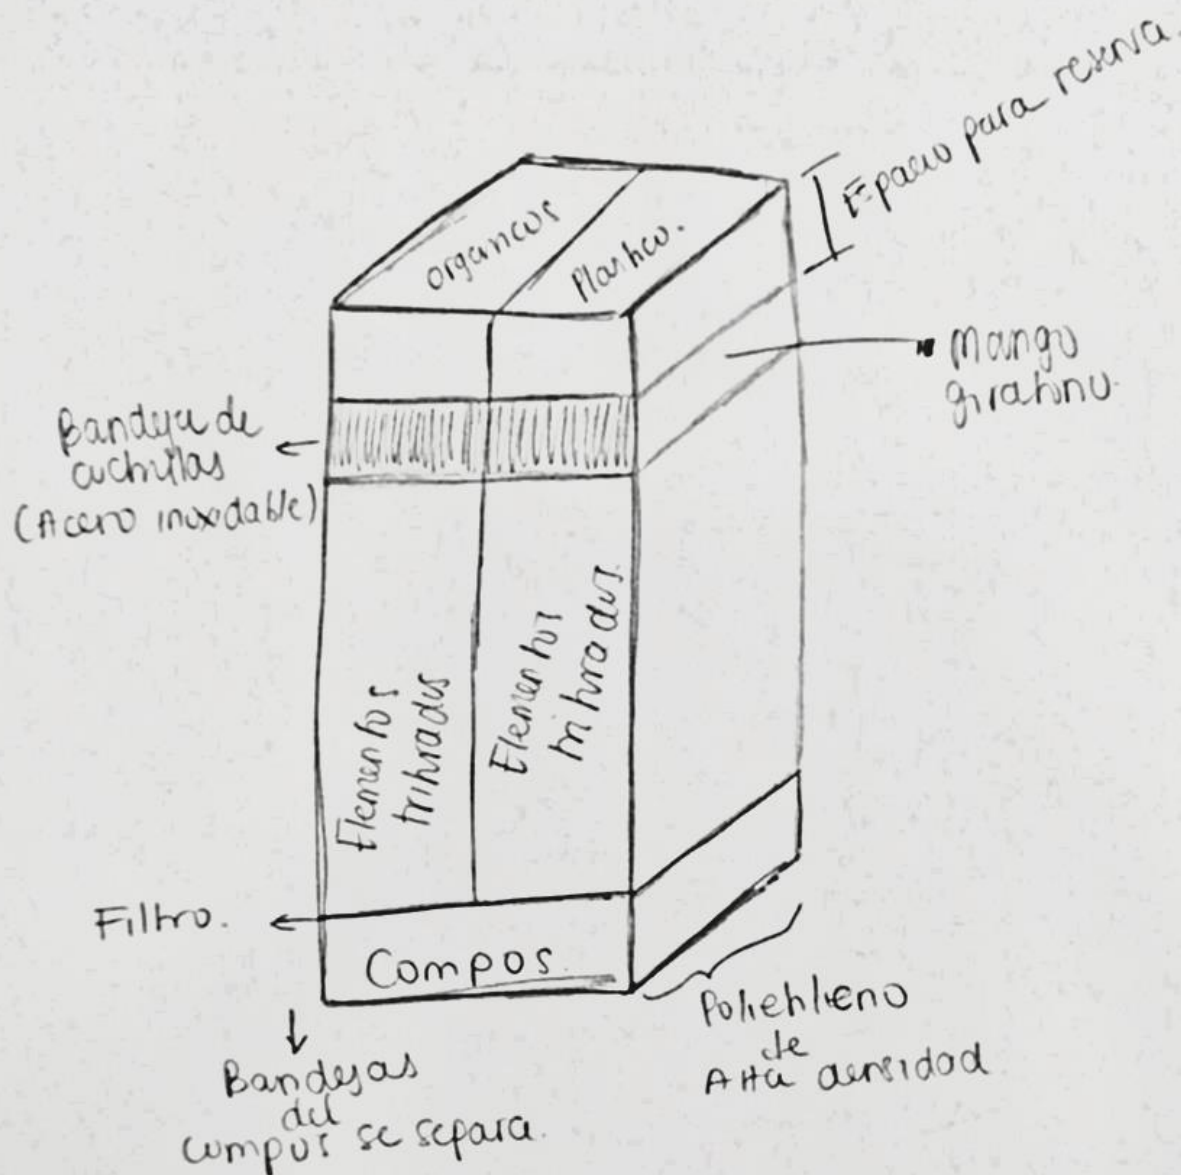 Espacio para reserva.
Organicos
Plastico.
Mango
giratorio.
Bandeja de
cuchillas
(Acero inoxidable)
Elementos
trihrados
Elementos
trihrados
Filtro.
Compos.
Polietileno
de
Alta densidad
Bandejas
del
compos se separa.